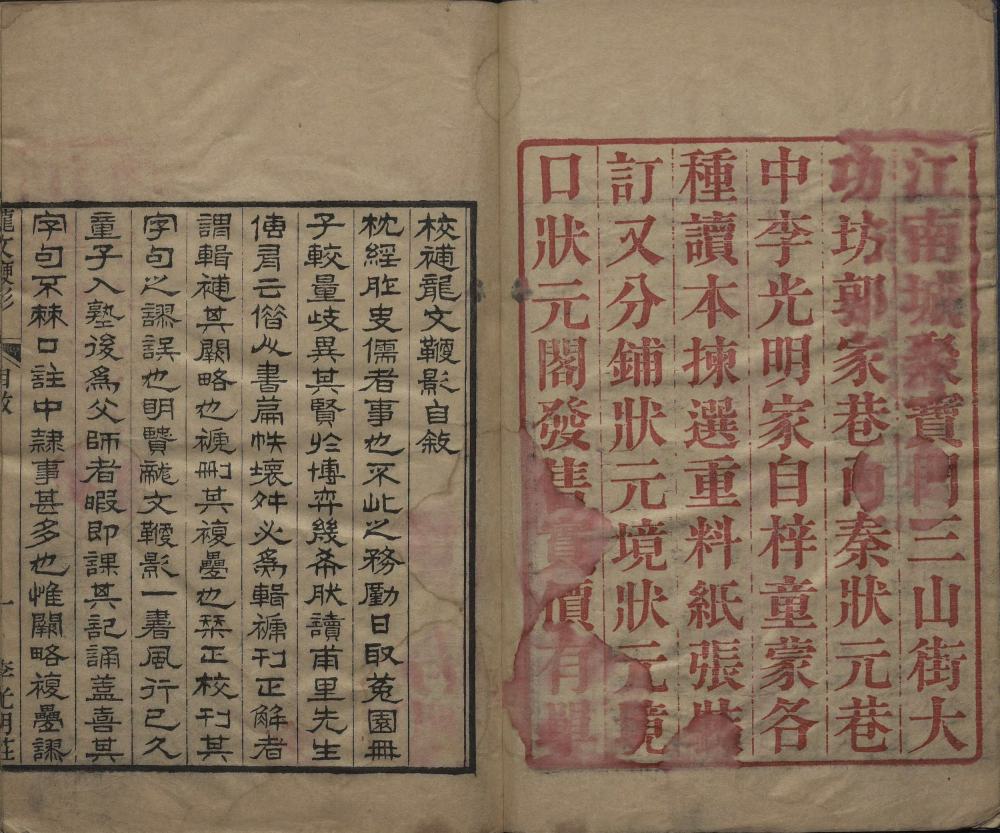 江南城聚寶門三山街大
功坊郭家巷內秦狀元巷
中李光明家自梓童蒙各
種讀本揀選重料紙張裝
訂又分鋪狀元境狀元境
口狀元閣發售實價有單
校補龍文鞭影自敘
枕經胙史儒者事也不此之務勵日取菟園冊
子較量歧異其賢於博弈幾希肰讀甫里先生
傳有云借人書篇帙壞舛必爲輯褫刊正解者
謂輯補其闕略也褫刪其複疊也栞正校刊其
字句之謬誤也明贒龍文鞭影一書風行已久
童子入塾後爲父師者暇即課其記誦蓋喜其
字句不棘口註中隸事甚多也惟闕略複疊謬
龍文鞭影
自敘
一
李光明莊